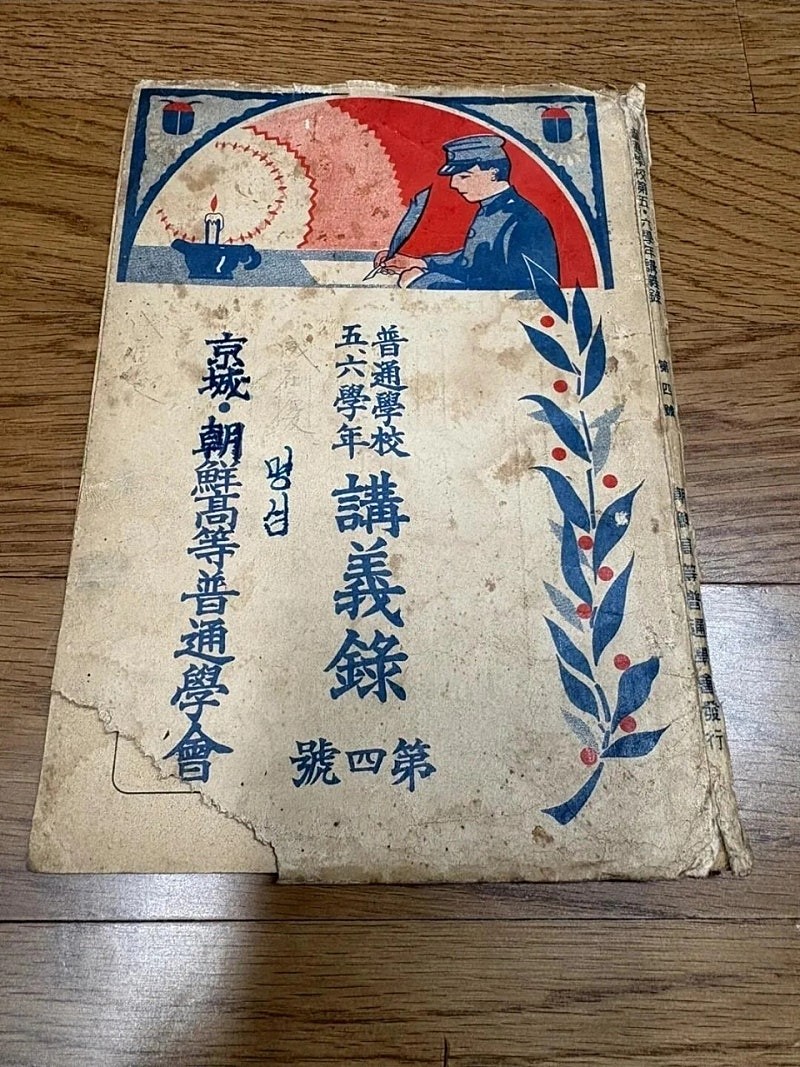 普通學校
五、六學年
講義錄
第四號
명섭
京城・朝鮮高等普通學會
普通學校第五・六學年講義錄 第四號 朝鮮高等普通學會發行